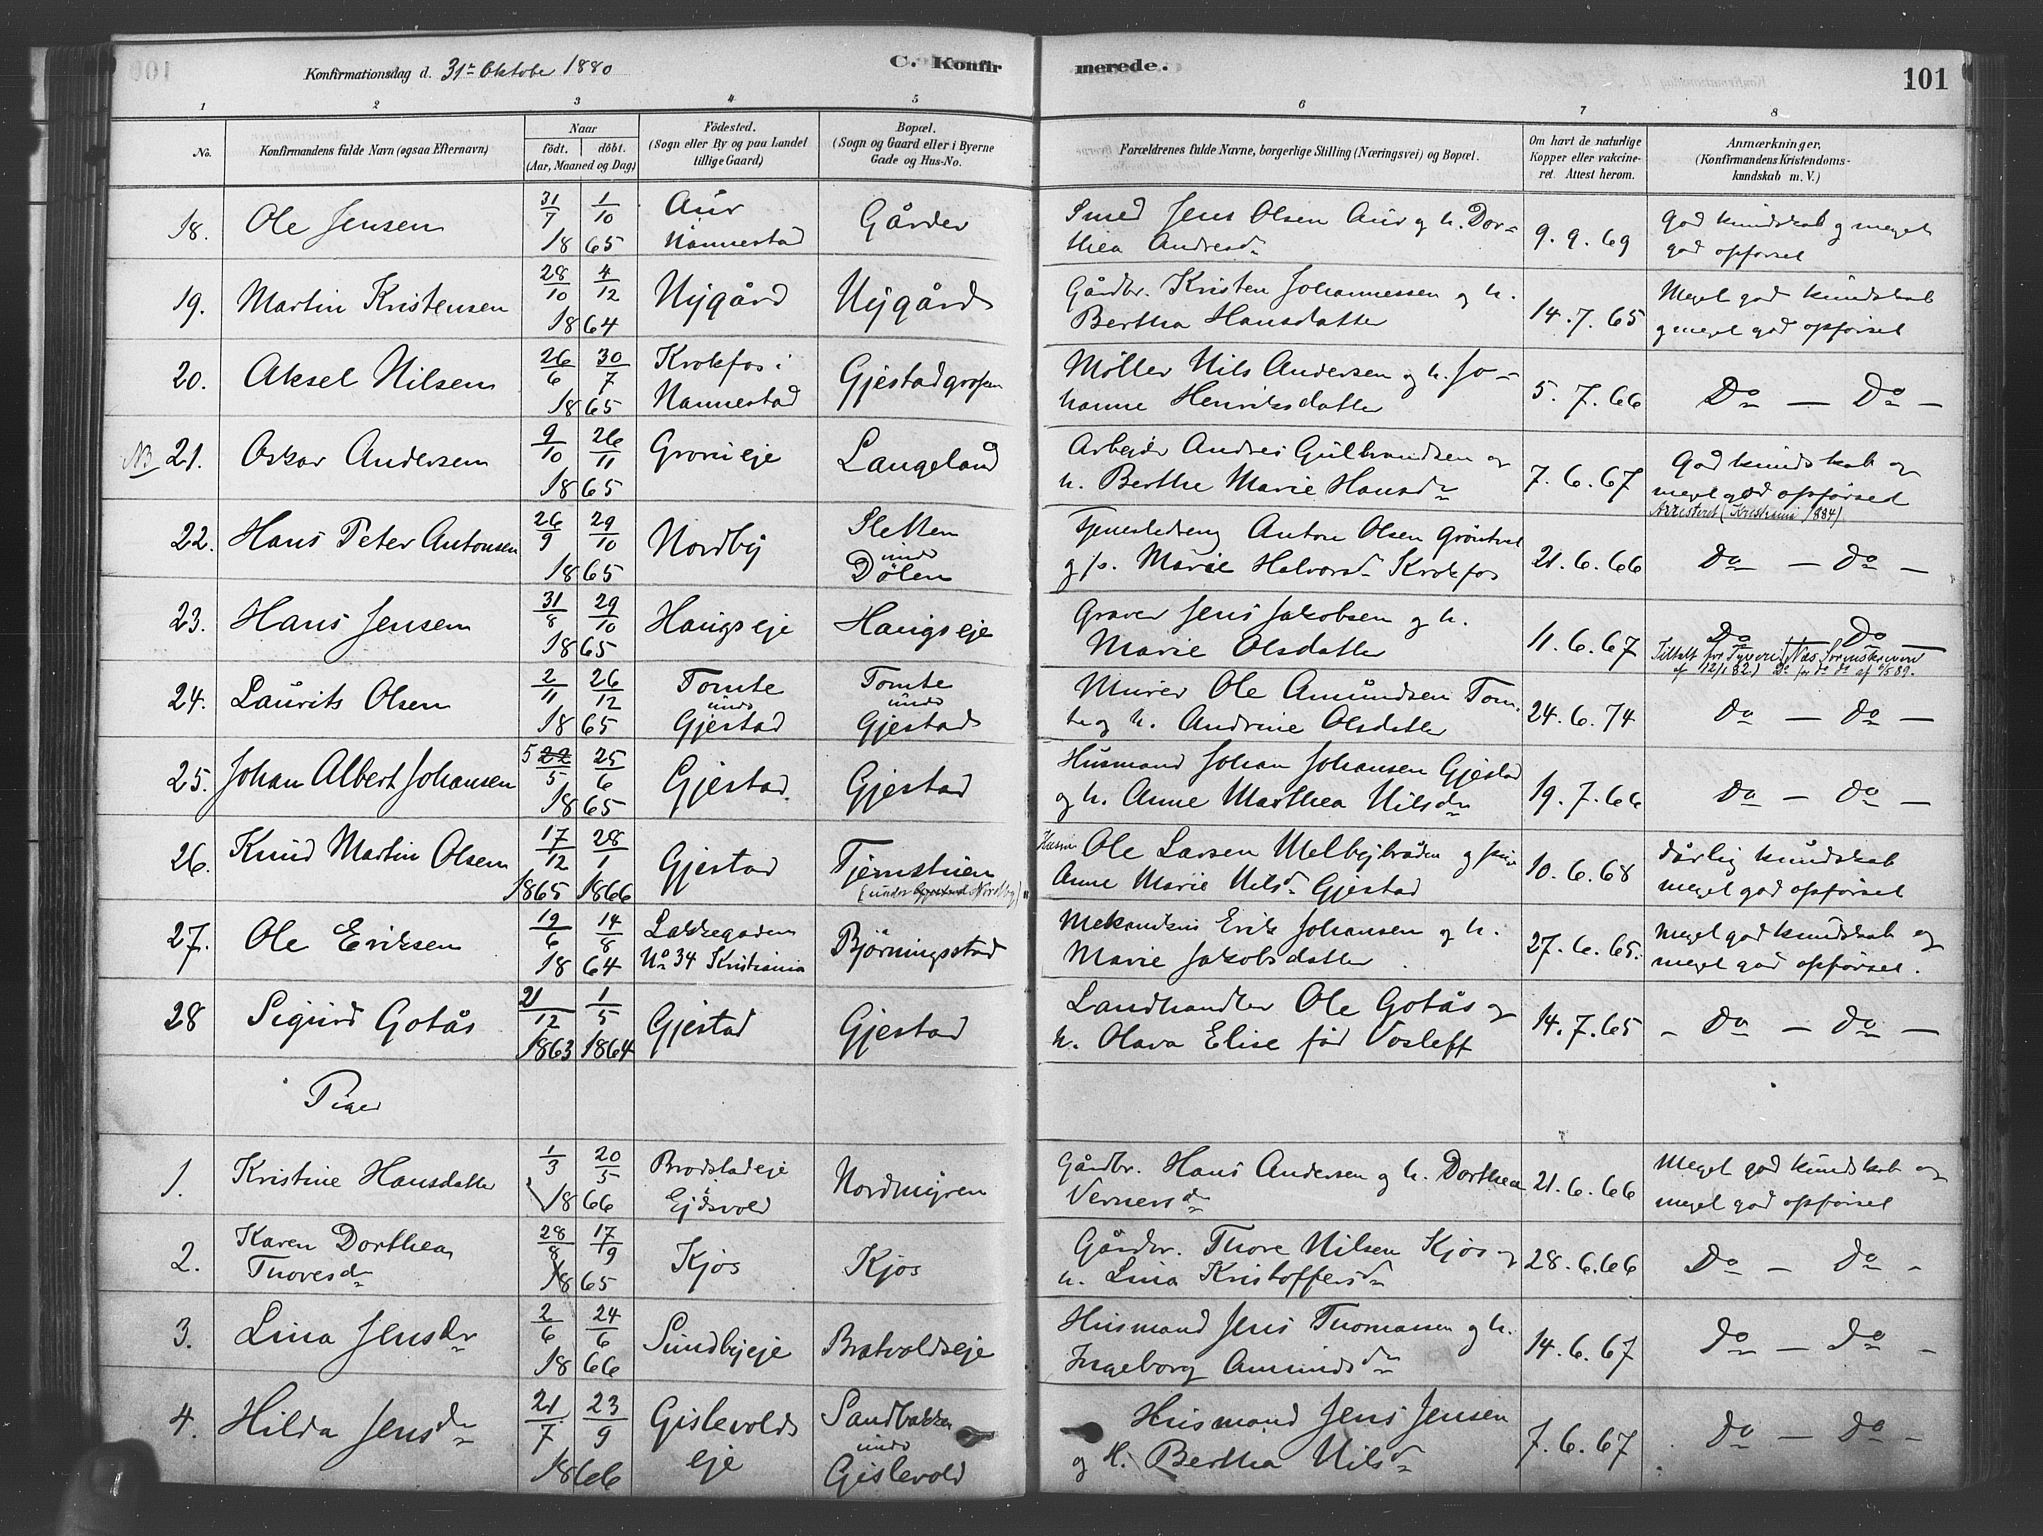 Konfirmationsdag d. 31te Oktober 1880
C. Konfirmerede.
101
1 2 3 4 5 6 7 8
No.
Konfirmandens fulde Navn (ogsaa Efternavn)
Naar
födt. döbt.
(Aar, Maaned og Dag)
Födested.
(Sogn eller By og paa Landet
tillige Gaard)
Bopæl.
(Sogn og Gaard eller i Byerne
Gade og Hus-No.
Forældrenes fulde Navne, borgerlige Stilling (Næringsvei) og Bopæl.
Om havt de naturlige
Kopper eller vakcine-
ret. Attest herom.
Anmærkninger,
(Konfirmandens Kristendoms-
kundskab m. V.)
18. Ole Jensen 31/7 1/10 1865 Aur Nannestad Gårder Smed Jens Olsen Aur og h. Dor-
thea Andresd. 9.9.69 God kundskab og meget
god opførsel
19. Martin Kristensen 28/10 4/12 1864 Nygård Nygård Gårdbr. Kristen Johannessen og h.
Bertha Hansdatter 14.7.65 Meget god kundskab
og meget god opførsel
20. Aksel Nilsen 26/6 30/7 1865 Krokfos i Nannestad Møller Nils Andersen og h. Jo-
hanne Henriksdatter 5.7.66 Do — Do —
NB 21. Oskar Andersen 9/10 26/11 1865 Langeland Arbejder Andres Gulbrandsen og
h. Berthe Marie Hansd. 7.6.67 God kundskab og
meget god opførsel
Arresteret (Kristiania 1884)
22. Hans Peter Antonsen 26/9 29/10 1865 Nordby Sletten
under
Dølen Anton Olsen
og p. Marie Halvorsd. Krokfos 21.6.66 Do — Do —
23. Hans Jensen 31/8 29/10 1865 Haugseje Haugseje Graver Jens Jakobsen og h.
Marie Olsdatter 11.6.67 Do — Do —
Tiltalt for Tyveri (Næs Sorenskriveri
24. Laurits Olsen 2/11 26/12 1865 Tomte
under
Gjestad Tomte
under
Gjestad Murer Ole Amundsen Tom-
te og h. Andrine Olsdatter 24.6.74 Do — Do —
25. Johan Albert Johansen 5 22/5 25/6 1865 Gjestad Gjestad Husmand Johan Johansen Gjestad
og h. Anne Marthea Nilsd. 19.7.66 Do — Do —
26. Knud Martin Olsen 17/12 28/1 1865 1866 Gjestad Tjernstuen
(under Gjestad Nordby) Ole Larsen Melbybråden og pige
Anne Marie Nilsd. Gjestad 10.6.68 dårlig kundskab
meget god opførsel
27. Ole Eriksen 19/6 14/8 1864 Lakkegaden
No 34 Kristiania Bjørningsstad Mekanikus Erik Johansen og h.
Marie Jakobsdatter 27.6.65. Meget god kundskab og
meget god opførsel.
28 Sigurd Gotås 21/12 1/5 1863 1864 Gjestad Gjestad Landhandler Ole Gotås og
h. Olava Elise fød Vosleff 14.7.65 - Do — Do —
Piger
1. Kristine Hansdatter 1/3 20/5 1866 Brodstadeje
Ejdsvold Nordmyren Gårdbr. Hans Andersen og h. Dorthea
Vernersd. 21.6.66 Meget god kundskab og
meget god opførsel
2. Karen Dorthea
Thoresd. 28/8 17/9 1865 Kjos Kjos Gårdbr. Thore Nilsen Kjos og
h. Lina Kristoffersd. 28.6.66 Do — Do -
3. Lina Jensd. 2/6 24/6 1866 Sundbyeje Bratvoldseje Husmand Jens Thomassen og h.
Ingeborg Amundsd. 14.6.67 Do — Do -
4. Hilda Jensd. 21/7 23/9 1866 Gislevolds
eje Sandbakken
under
Gislevold Husmand Jens Jensen
og h. Bertha Nilsd. 7.6.67 Do — Do —